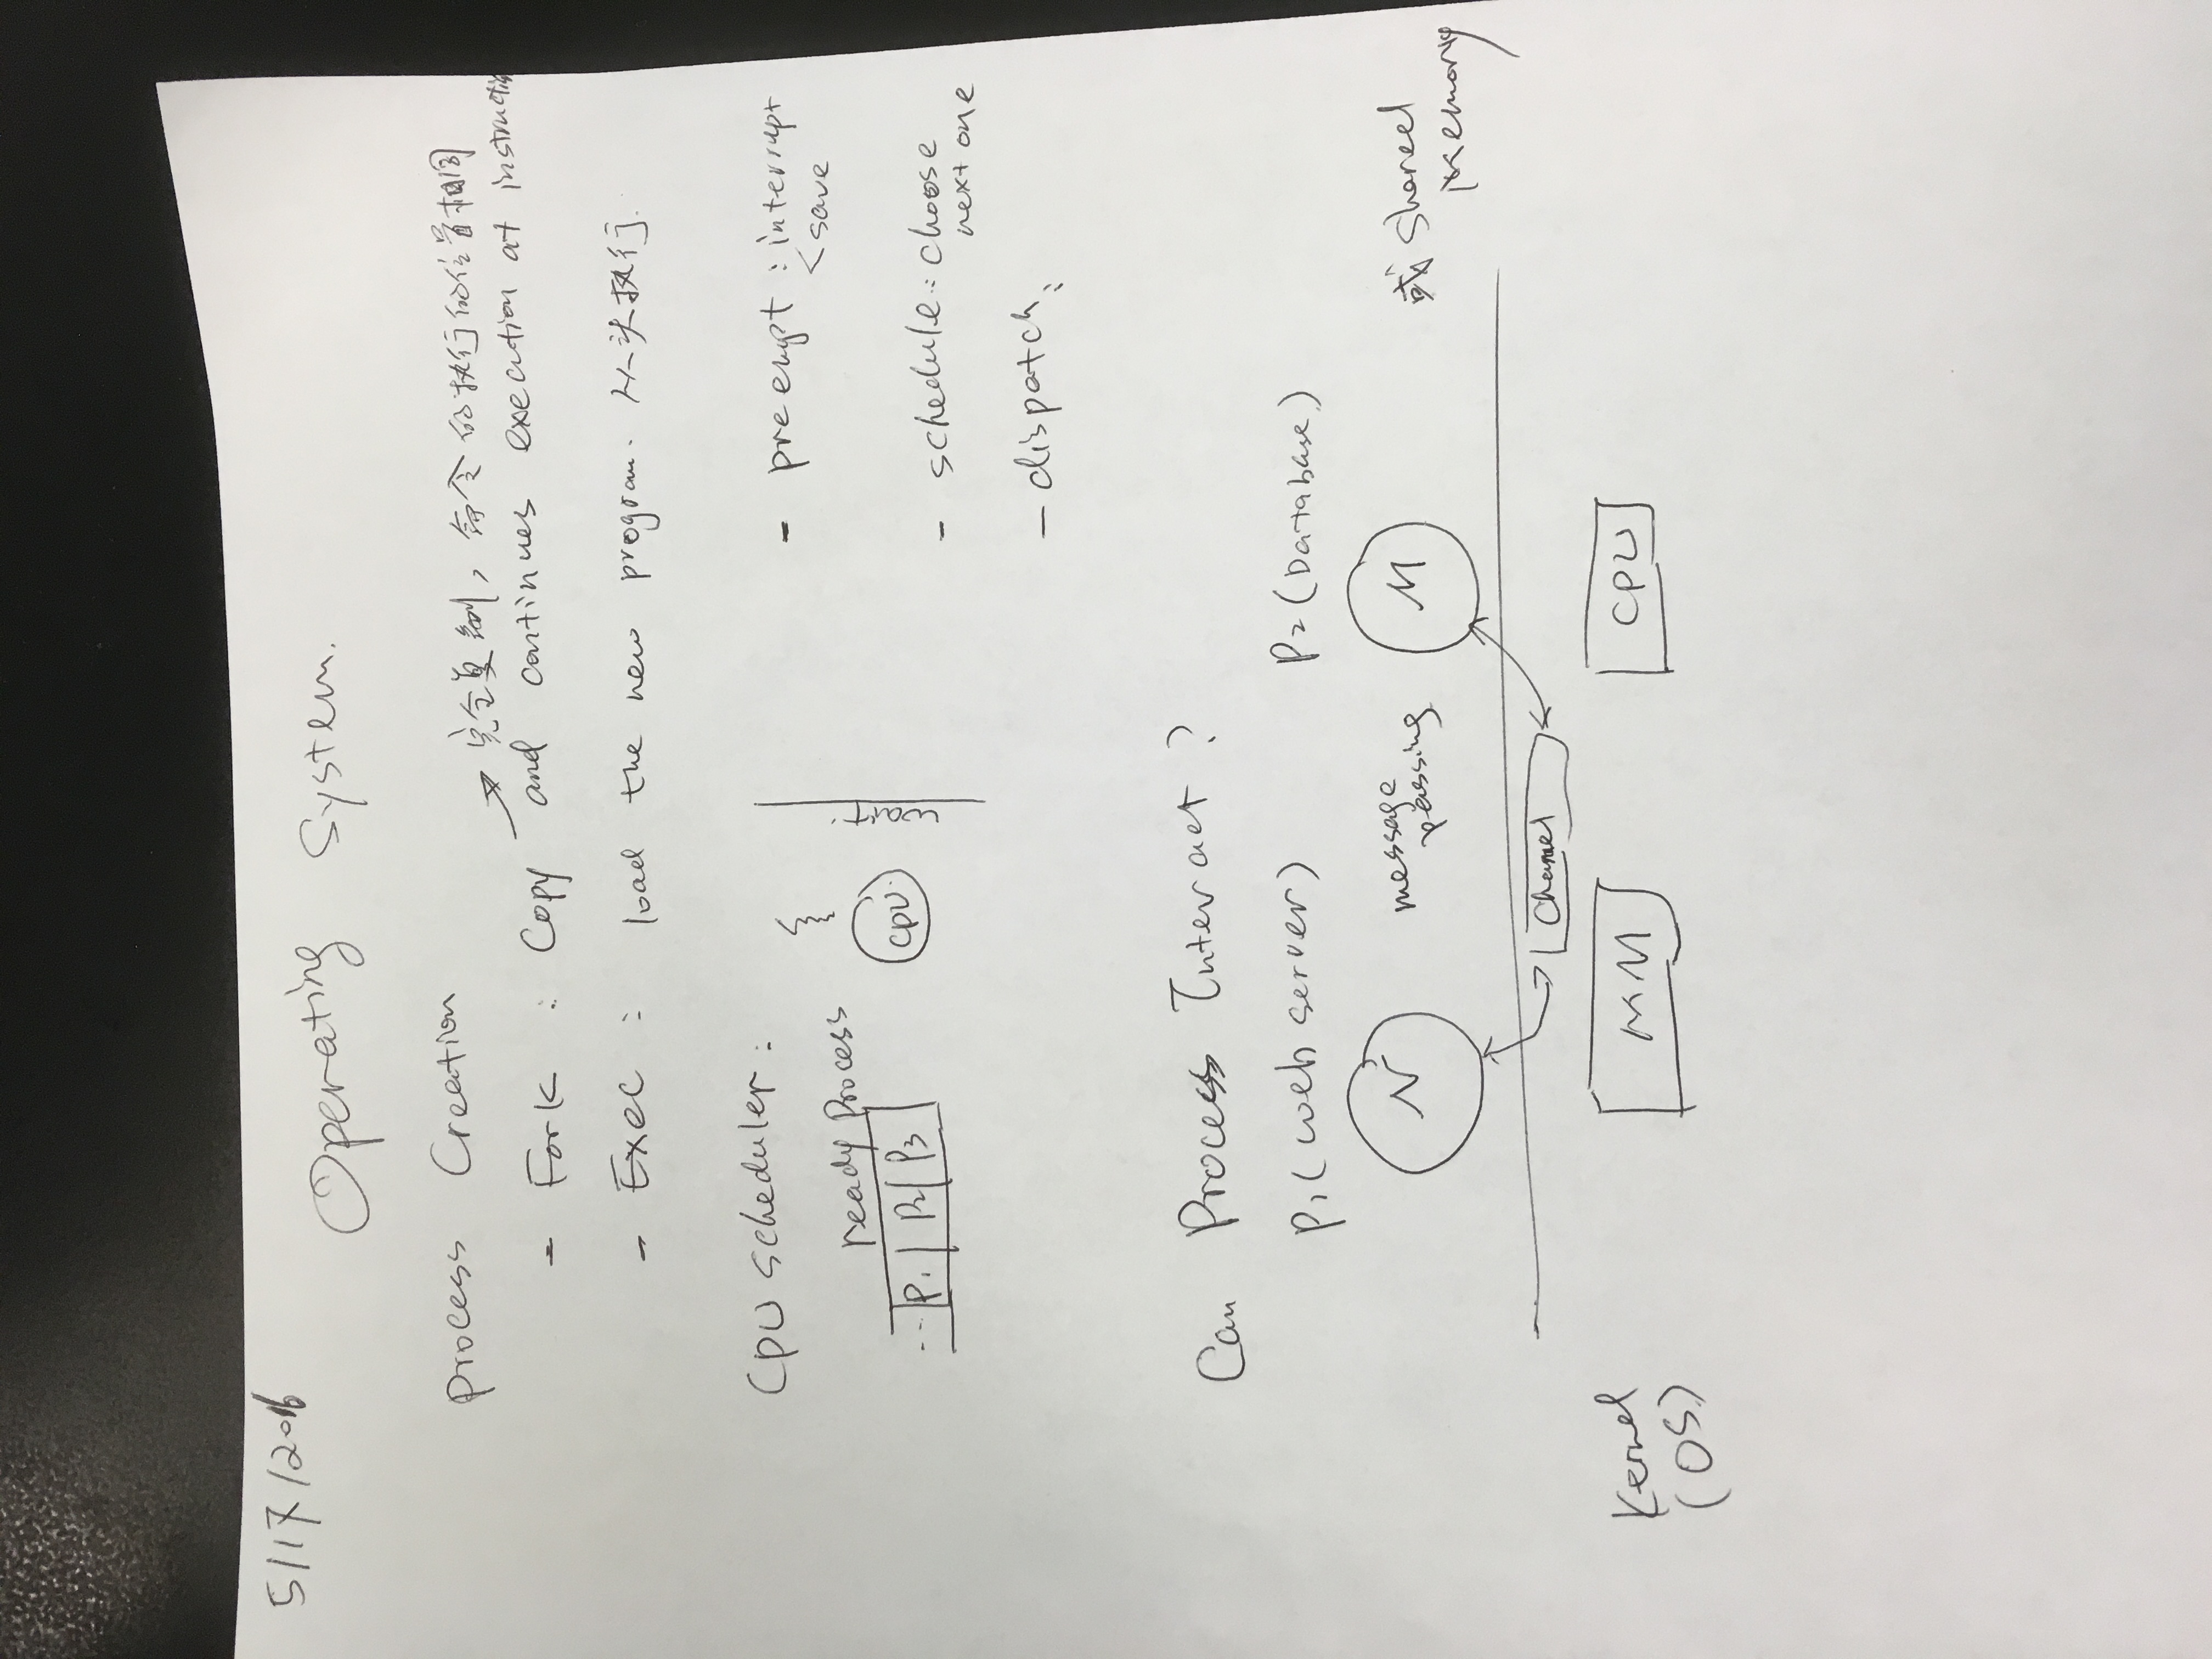 5/17/2016
Operating System.
process Creation
→ 完全复制, 命令的执行的位置相同
- Fork : Copy and continues execution at instruction
- Exec : load the new program. 从头执行.
CPU scheduler :
ready Process
... P1 P2 P3
CPU
wait.
- preempt : interrupt
< save
- schedule : choose
next one
- dispatch :
Can Process Interact ?
P1 (web server)
P2 (Database)
N
message
passing
M
或 shared
memory
Channel
Kernel
(OS)
MM
CPU